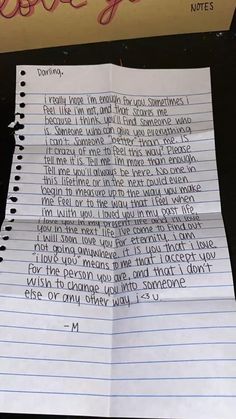 love you
NOTES
Darling,
I really hope I'm enough for you. Sometimes I
feel like I'm not, and that scares me
because I think you'll find someone who
is. Someone who can give you everything
I can't. Someone "better" than me. Is
it crazy of me to feel this way? Please
tell me it is. Tell me I'm more than enough.
Tell me you'll always be here. No one in
this lifetime or in the next could even
begin to measure up to the way you make
me feel or to the way that I feel when
I'm with you. I loved you in my past life,
I love you in my present life and I'll love
you in the next life. I've come to find out
I will soon love you for eternity. I am
not going anywhere. It is you that I love
"I love you" means to me that I accept you
for the person you are, and that I don't
wish to change you into someone
else or any other way. I <3 U
- M